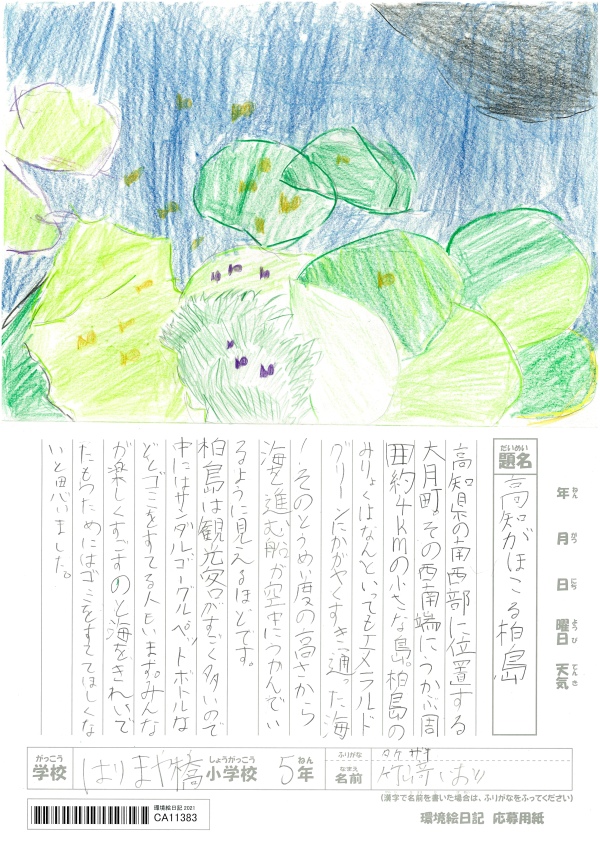 年 ねん
月 がつ
日 にち
曜日 ようび
天気 てんき
題名 だいめい
高知がほこる柏島
高知県の南西部に位置する
大月町。その西南端にうかぶ周
囲約4kmの小さな島。柏島の
みりょくはなんといってもエメラルド
グリーンにかがやくすき通った海
！そのとうめい度の高さから
海を進む船が空中にうかんでい
るように見えるほどです。
柏島は観光客がすごく多いので
中にはサンダルゴーグルペットボトルな
どとゴミをすてる人もいます。みんな
が楽しくすごすのと海をきれいで
たもつためにはゴミをすてほしくな
いと思いました。
がっこう 学校
はりまや橋
しょうがっこう 小学校
5
ねん 年
ふりがな
タケ ザキ
なまえ 名前
竹﨑いおり
(漢字で名前を書いた場合は、ふりがなをふってください)
環境絵日記 2021
CA11383
環境絵日記 応募用紙